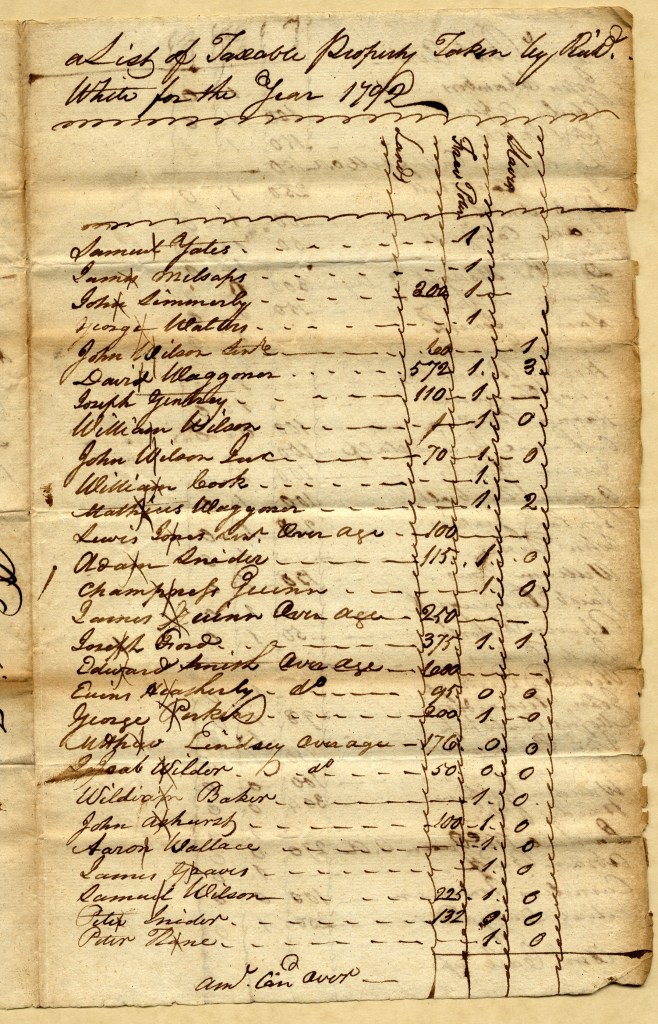 a List of Taxable Property Taken by Richd.
White for the Year 1792
Lands Free Poles Slaves
Samuel Yates - - - - - - 1
James Milsaps - - - - - - 1
John Simmerly - - - - - 200 - 1 -
George Walters - - - - - - 1
John Wilson 60 - 1
David Waggoner - - - - 572 1 . 3
Joseph Gentrey - - - - 110 - 1 - -
William Wilson 1 0
John Wilson - - - 70 - 1 - 0
William Cook - - - - - 1 -
Mathias Waggoner - - - - 1 . 2
Lewis Jones Snr. Over age - 100
Adam Snider - - - - 115 . 1 . 0
Champness Guinn - - - - 1 . 0
James Guinn Over age - - 250
Joseph Ford - - - - - 375 1 . 1
Edward Smith Over age - 600 -
Evins Heatherly - do - - - - 95 0 0
George Perkins - - - - 200 1 . 0
Lindsey over age - 176 . 0 0
Jacob Wilder . do - - - 50 0 0
William Baker - - - - - 1 . 0
John Ashurst - - - - 100 - 1 . 0
Aaron Wallace - - - - 1 . 0
James Graves - - - - - 1 - 0
Samuel Wilson - - - - 225 . 1 . 0
Peter Snider - - - - 132 0 0
Peter - - - - - 1 . 0
Amt. Carrd over —